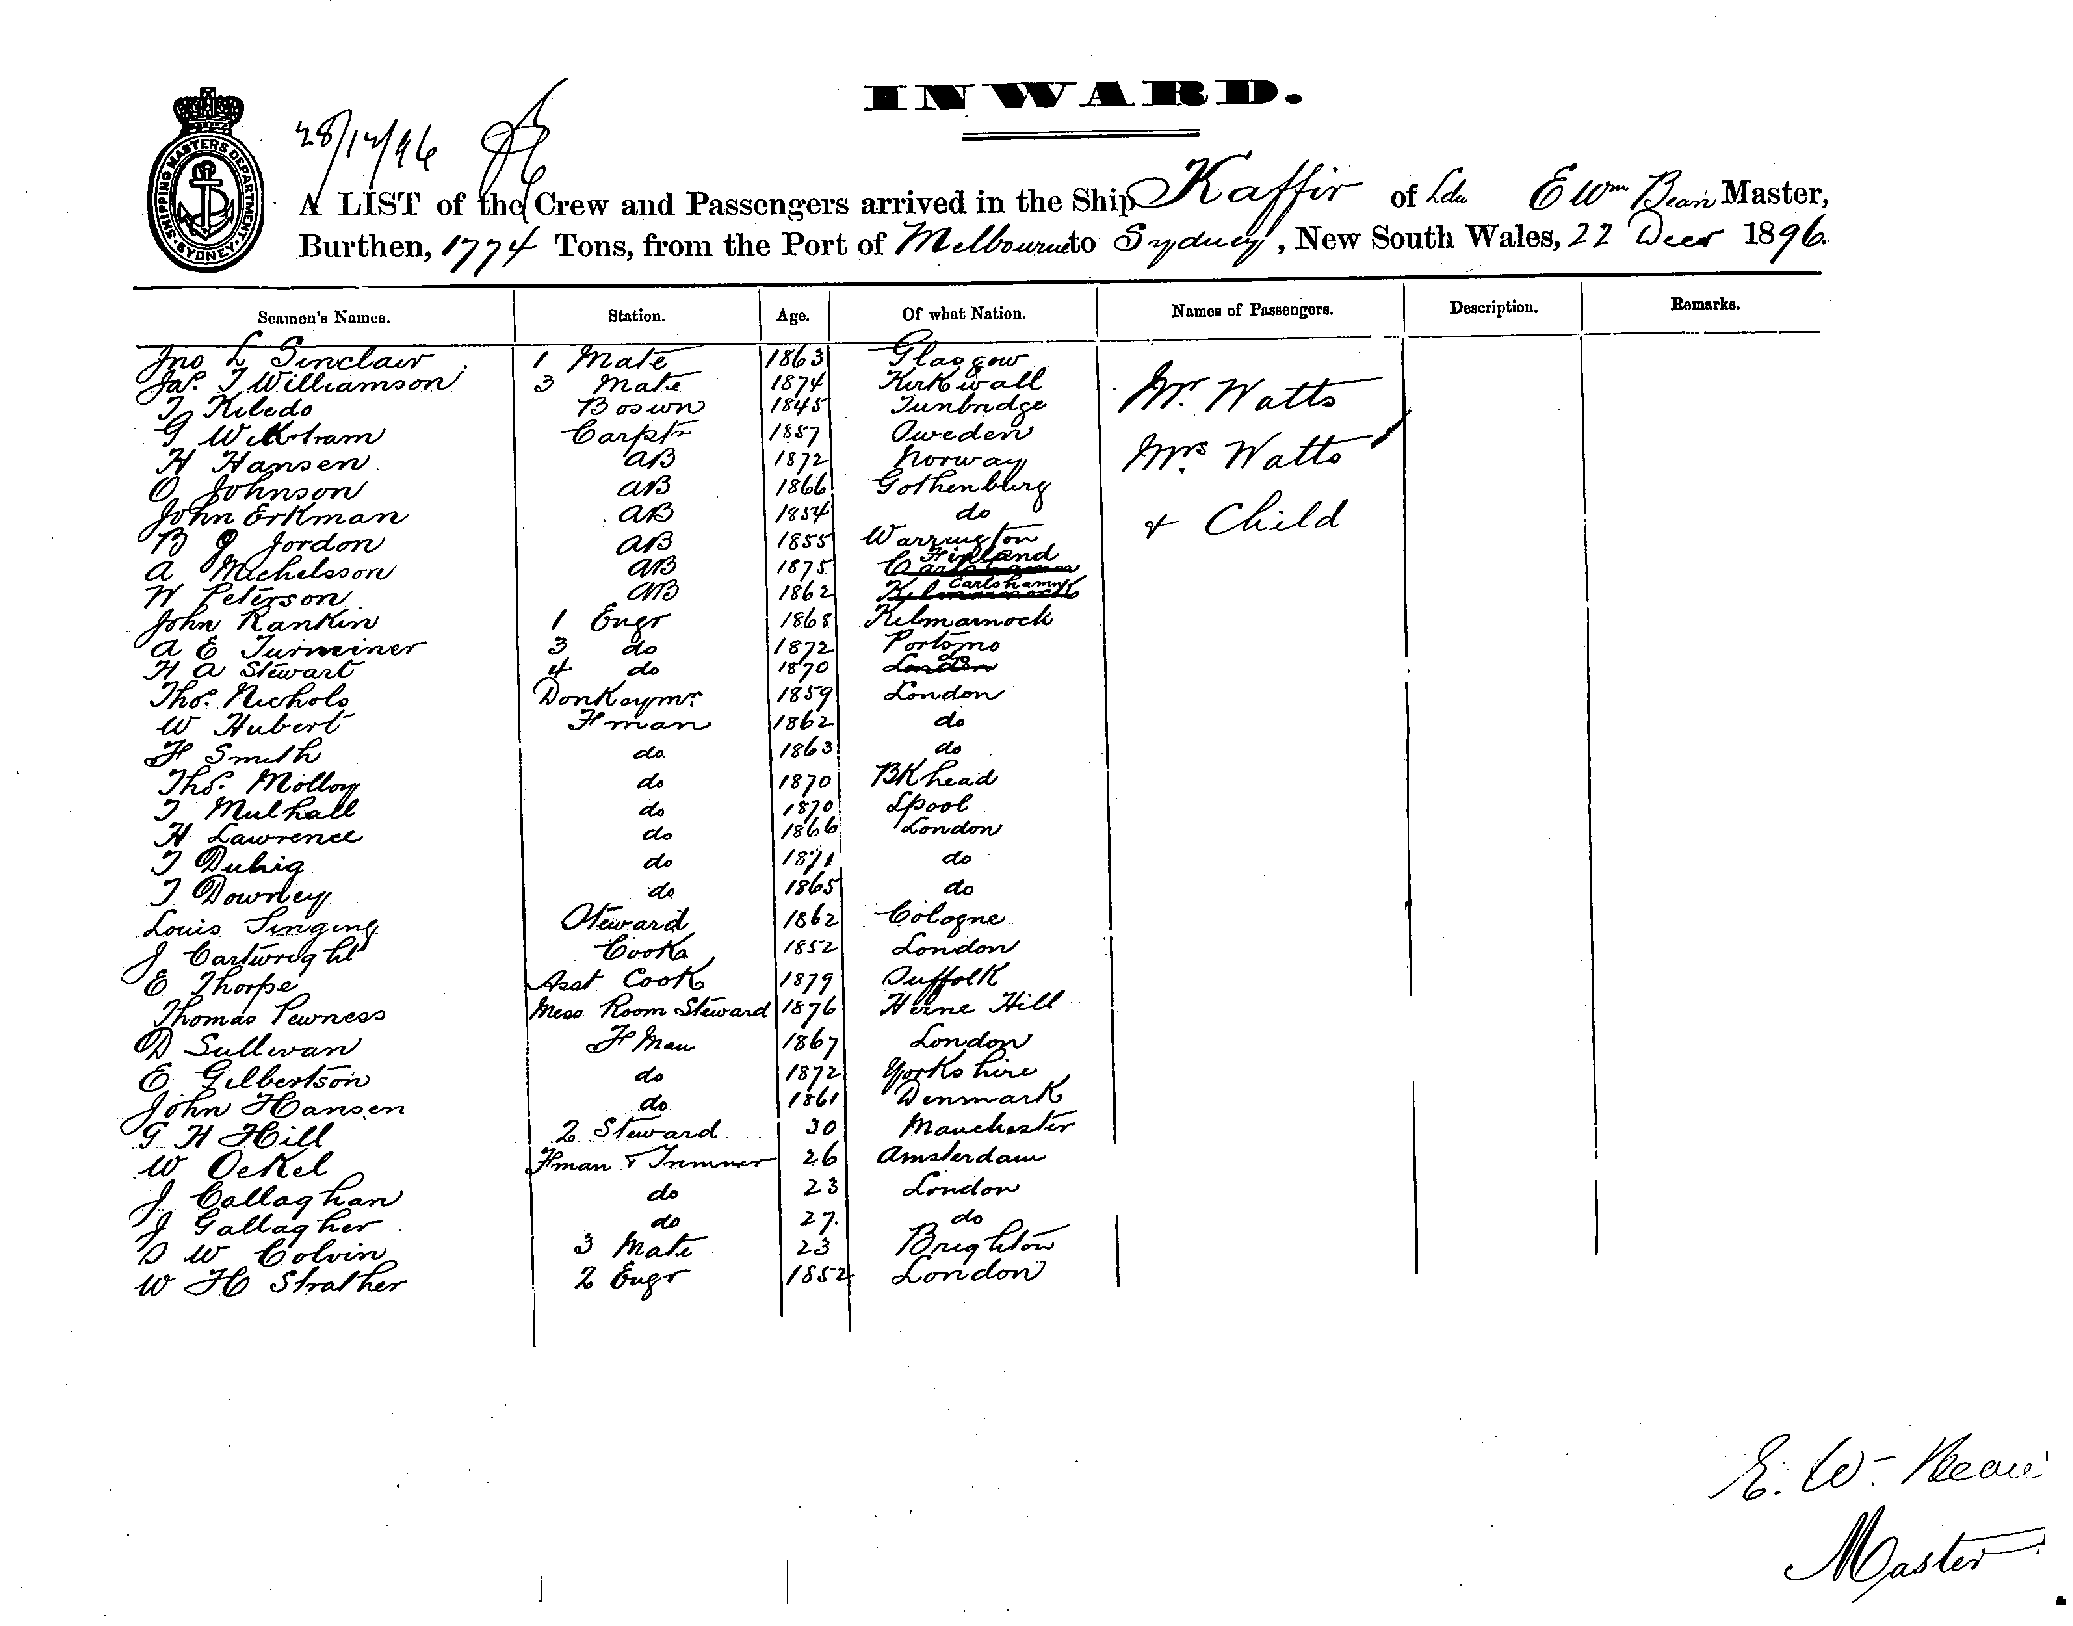 INWARD.
28/12/96
SHIPPING MASTERS DEPARTMENT SYDNEY
A LIST of the Crew and Passengers arrived in the Ship Kaffir of Ldn E Wm Bean Master,
Burthen, 1774 Tons, from the Port of Melbourne to Sydney, New South Wales, 22 Decr 1896.
Seamen's Names. Station. Age. Of what Nation. Names of Passengers. Description. Remarks.
Jno L Sinclair 1 Mate 1863 Glasgow
Jas. T Williamson 3 Mate 1874 Kirkwall Mr. Watts
T Kiledo Boswn 1845 Tunbridge
G Wikstram Carptr 1857 Sweden Mrs Watts
H Hansen AB 1872 Norway
O Johnson AB 1866 Gothenburg
John Erkman AB 1854 do & Child
B J Jordon AB 1855 Warrington
A Michelsson AB 1875 Finland
W Peterson AB 1862 Carlshamn
John Rankin 1 Engr 1868 Kilmarnock
A E Turminer 3 do 1872 Portsmo
H A Stewart 4 do 1870 London do
Thos. Nichols Donkeymn 1859 London
W Hubert Fman 1862 do
F Smith do 1863 do
Thos. Molloy do 1870 BKhead
T Mulhall do 1870 Lpool
H Lawrence do 1866 London
T Duhig do 1871 do
T Downey do 1865 do
Louis Singing Steward 1862 Cologne
J Cartwright Cook 1852 London
E Thorpe Asst Cook 1879 Suffolk
Thomas Pewness Mess Room Steward 1876 Herne Hill
D Sullivan F Man 1867 London
E Gilbertson do 1872 Yorkshire
John Hansen do 1861 Denmark
G H Hill 2 Steward 30 Manchester
W Oekel Fman & Trimmer 26 Amsterdam
J Callaghan do 23 London
J Gallagher do 27. do
D W Colvin 3 Mate 23 Brighton
W H Strather 2 Engr 1852 London
E. Wm Bean
Master